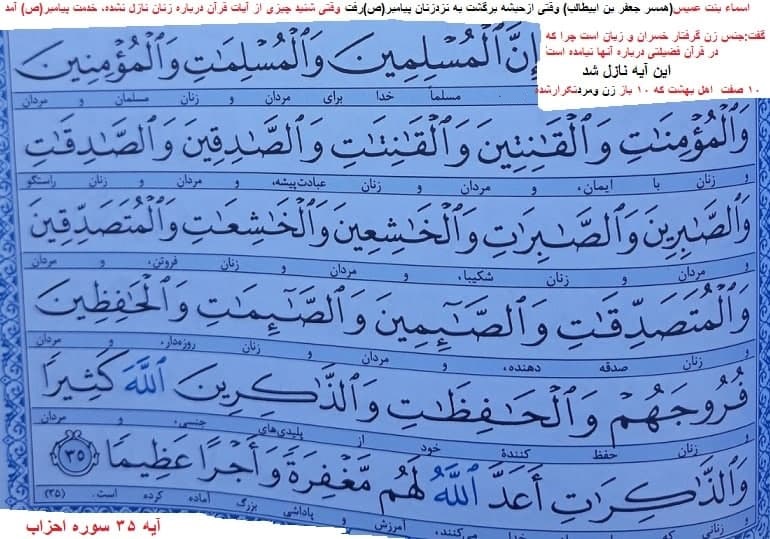 اسماء بنت عمیس(همسر جعفر بن ابیطالب) وقتی ازحبشه برگشت به نزدزنان پیامبر(ص)رفت وقتی شنید چیزی از آیات قرآن درباره زنان نازل نشده، خدمت پیامبر(ص) آمد
گفت:جنس زن گرفتار خسران و زیان است چرا که
در قرآن فضیلتی درباره آنها نیامده است
این آیه نازل شد
۱۰ صفت اهل بهشت که ۱۰ باز زن ومردتکرارشده
إِنَّ ٱلْمُسْلِمِينَ وَٱلْمُسْلِمَٰتِ وَٱلْمُؤْمِنِينَ
مسلماً خدا برای مردان و زنان مسلمان و مردان
وَٱلْمُؤْمِنَٰتِ وَٱلْقَٰنِتِينَ وَٱلْقَٰنِتَٰتِ وَٱلصَّٰدِقِينَ وَٱلصَّٰدِقَٰتِ
و زنان با ایمان، و مردان و زنان عبادت‌پیشه، و مردان و زنان راستگو
وَٱلصَّٰبِرِينَ وَٱلصَّٰبِرَٰتِ وَٱلْخَٰشِعِينَ وَٱلْخَٰشِعَٰتِ وَٱلْمُتَصَدِّقِينَ
و مردان و زنان شکیبا، و مردان و زنان فروتن، و مردان
وَٱلْمُتَصَدِّقَٰتِ وَٱلصَّٰٓئِمِينَ وَٱلصَّٰٓئِمَٰتِ وَٱلْحَٰفِظِينَ
و زنان صدقه دهنده، و مردان و زنان روزه‌دار، و مردان
فُرُوجَهُمْ وَٱلْحَٰفِظَٰتِ وَٱلذَّٰكِرِينَ ٱللَّهَ كَثِيرًا
و زنان حفظ کنندهٔ خود از پلیدی‌های جنسی، و مردان
وَٱلذَّٰكِرَٰتِ أَعَدَّ ٱللَّهُ لَهُم مَّغْفِرَةً وَأَجْرًا عَظِيمًا ۳۵
و زنانی که خدا می‌کنند، آمرزش و پاداشی بزرگ آماده کرده است. (۳۵)
آیه ۳۵ سوره احزاب